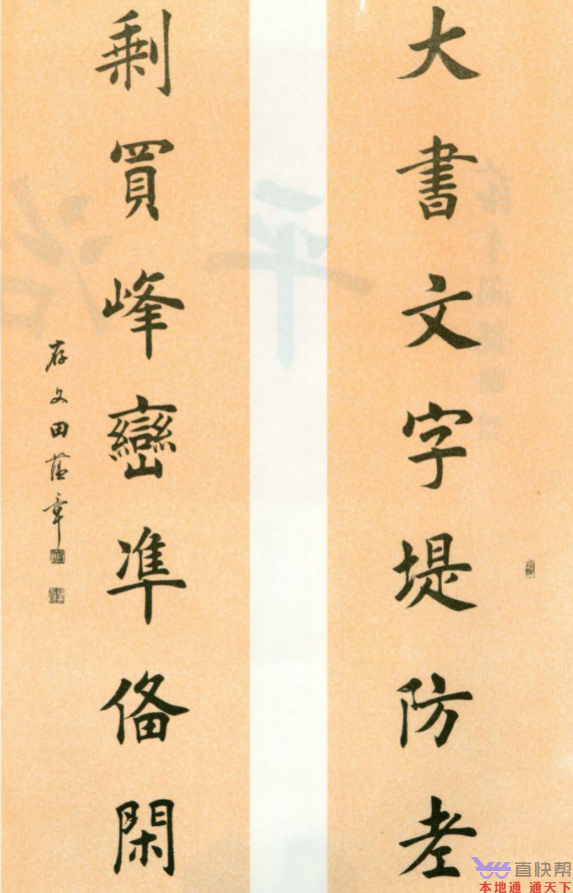 大書文字堤防老
剩買峰巒凖俻閑
存文田蕴章
平
治
直快帮
本地通 通天下